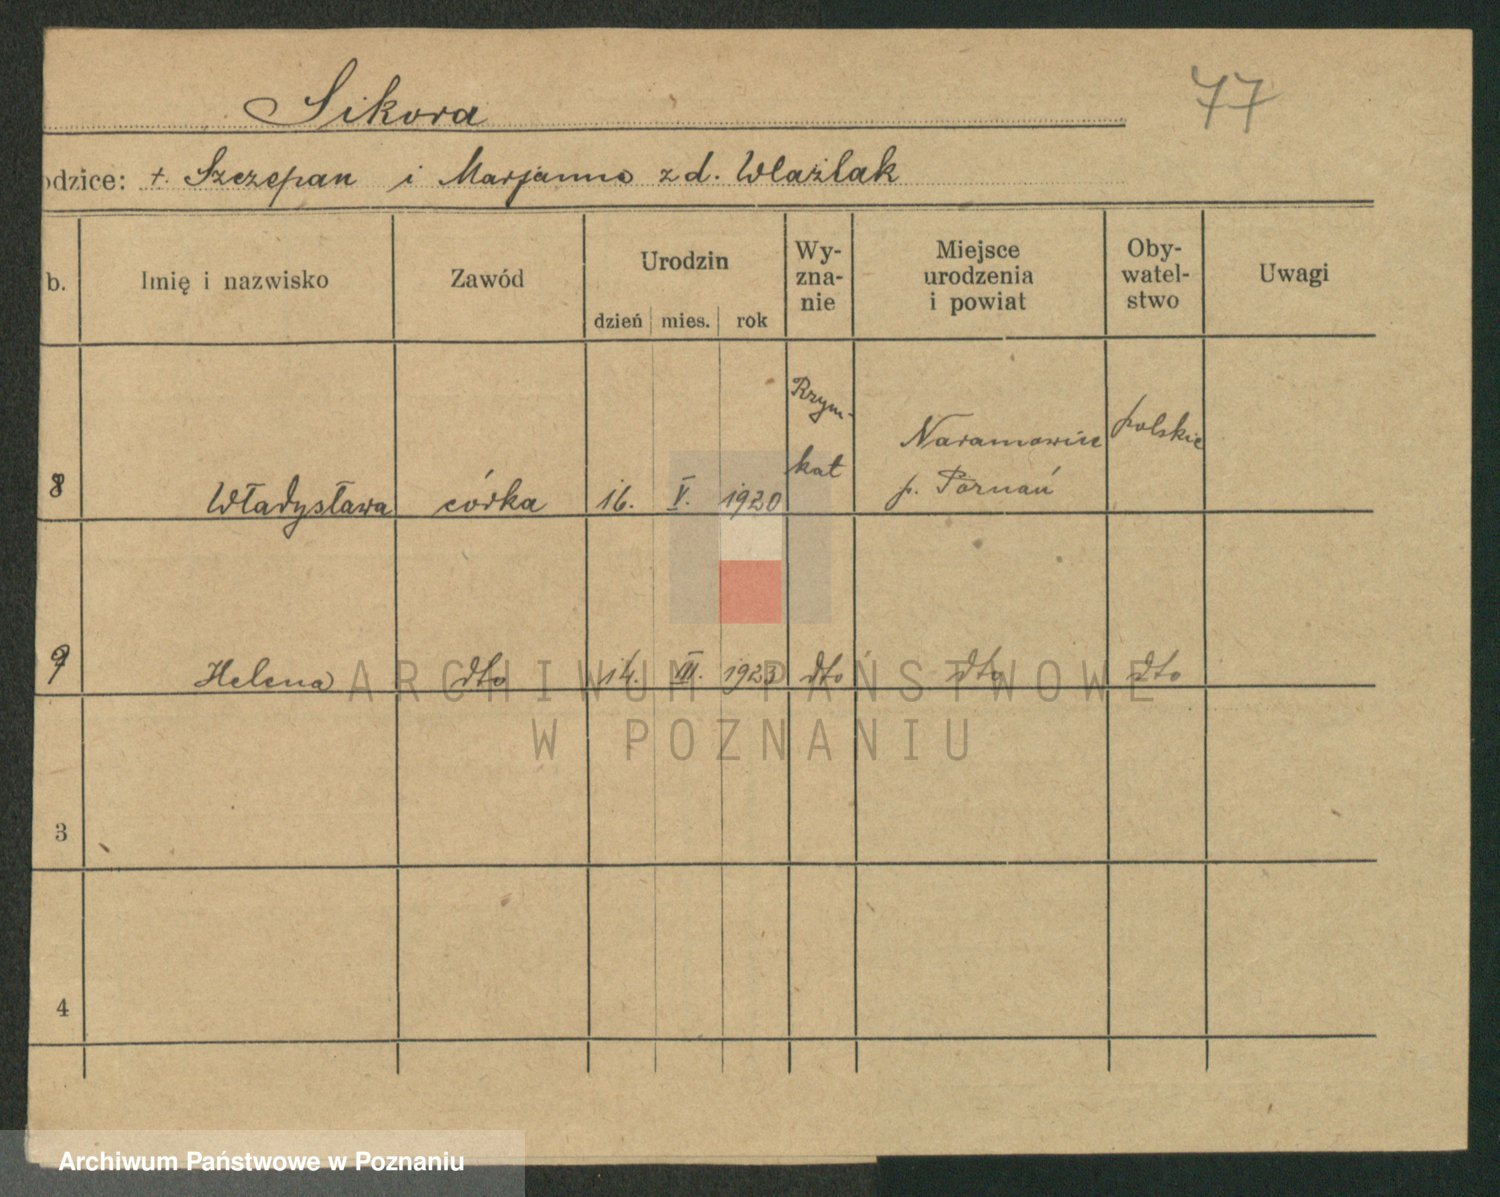 Sikora
77
odzice: +. Szczepan i Marjanna z d. Wlaźlak
b.
Imię i nazwisko
Zawód
Urodzin
dzień mies. rok
Wy-
zna-
nie
Miejsce
urodzenia
i powiat
Oby-
watel-
stwo
Uwagi
8
Władysława
córka
16. V. 1920
Rzym-
kat
Naramowice
p. Poznań
polskie
9
Helena
dto
14. III. 1923
dto
dto
dto
ARCHIWUM PAŃSTWOWE
W POZNANIU
3
4
Archiwum Państwowe w Poznaniu